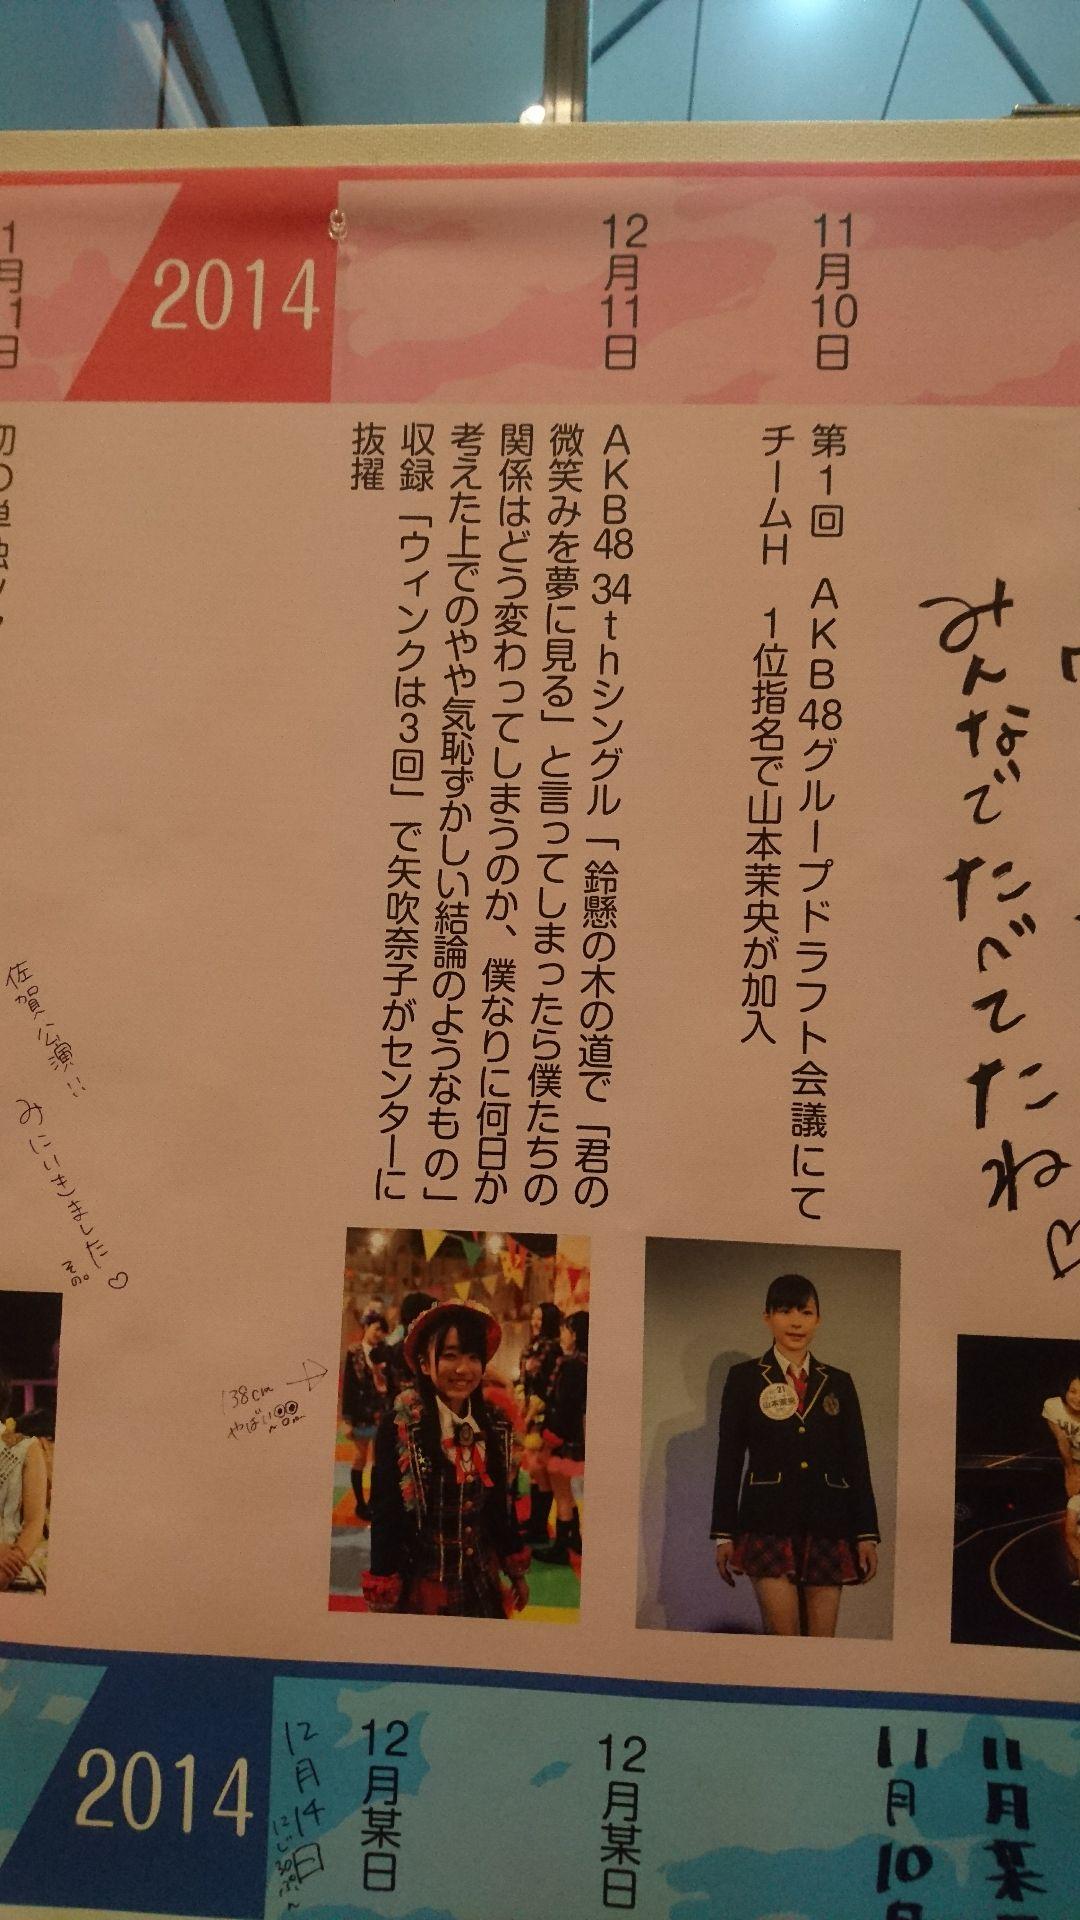 11月10日
第1回　AKB48グループドラフト会議にて
チームH　1位指名で山本茉央が加入
12月11日
AKB48 34thシングル「鈴懸の木の道で「君の
微笑みを夢に見る」と言ってしまったら僕たちの
関係はどう変わってしまうのか、僕なりに何日か
考えた上でのやや気恥ずかしい結論のようなもの」
収録「ウィンクは3回」で矢吹奈子がセンターに
抜擢
2014
1月1日
みんなでたべてたね♡
138cm
やばい
佐賀公演!!
みにいきました♡
21
山本茉央
11月某
11月10
12月某日
12月某日
12月14日
2014